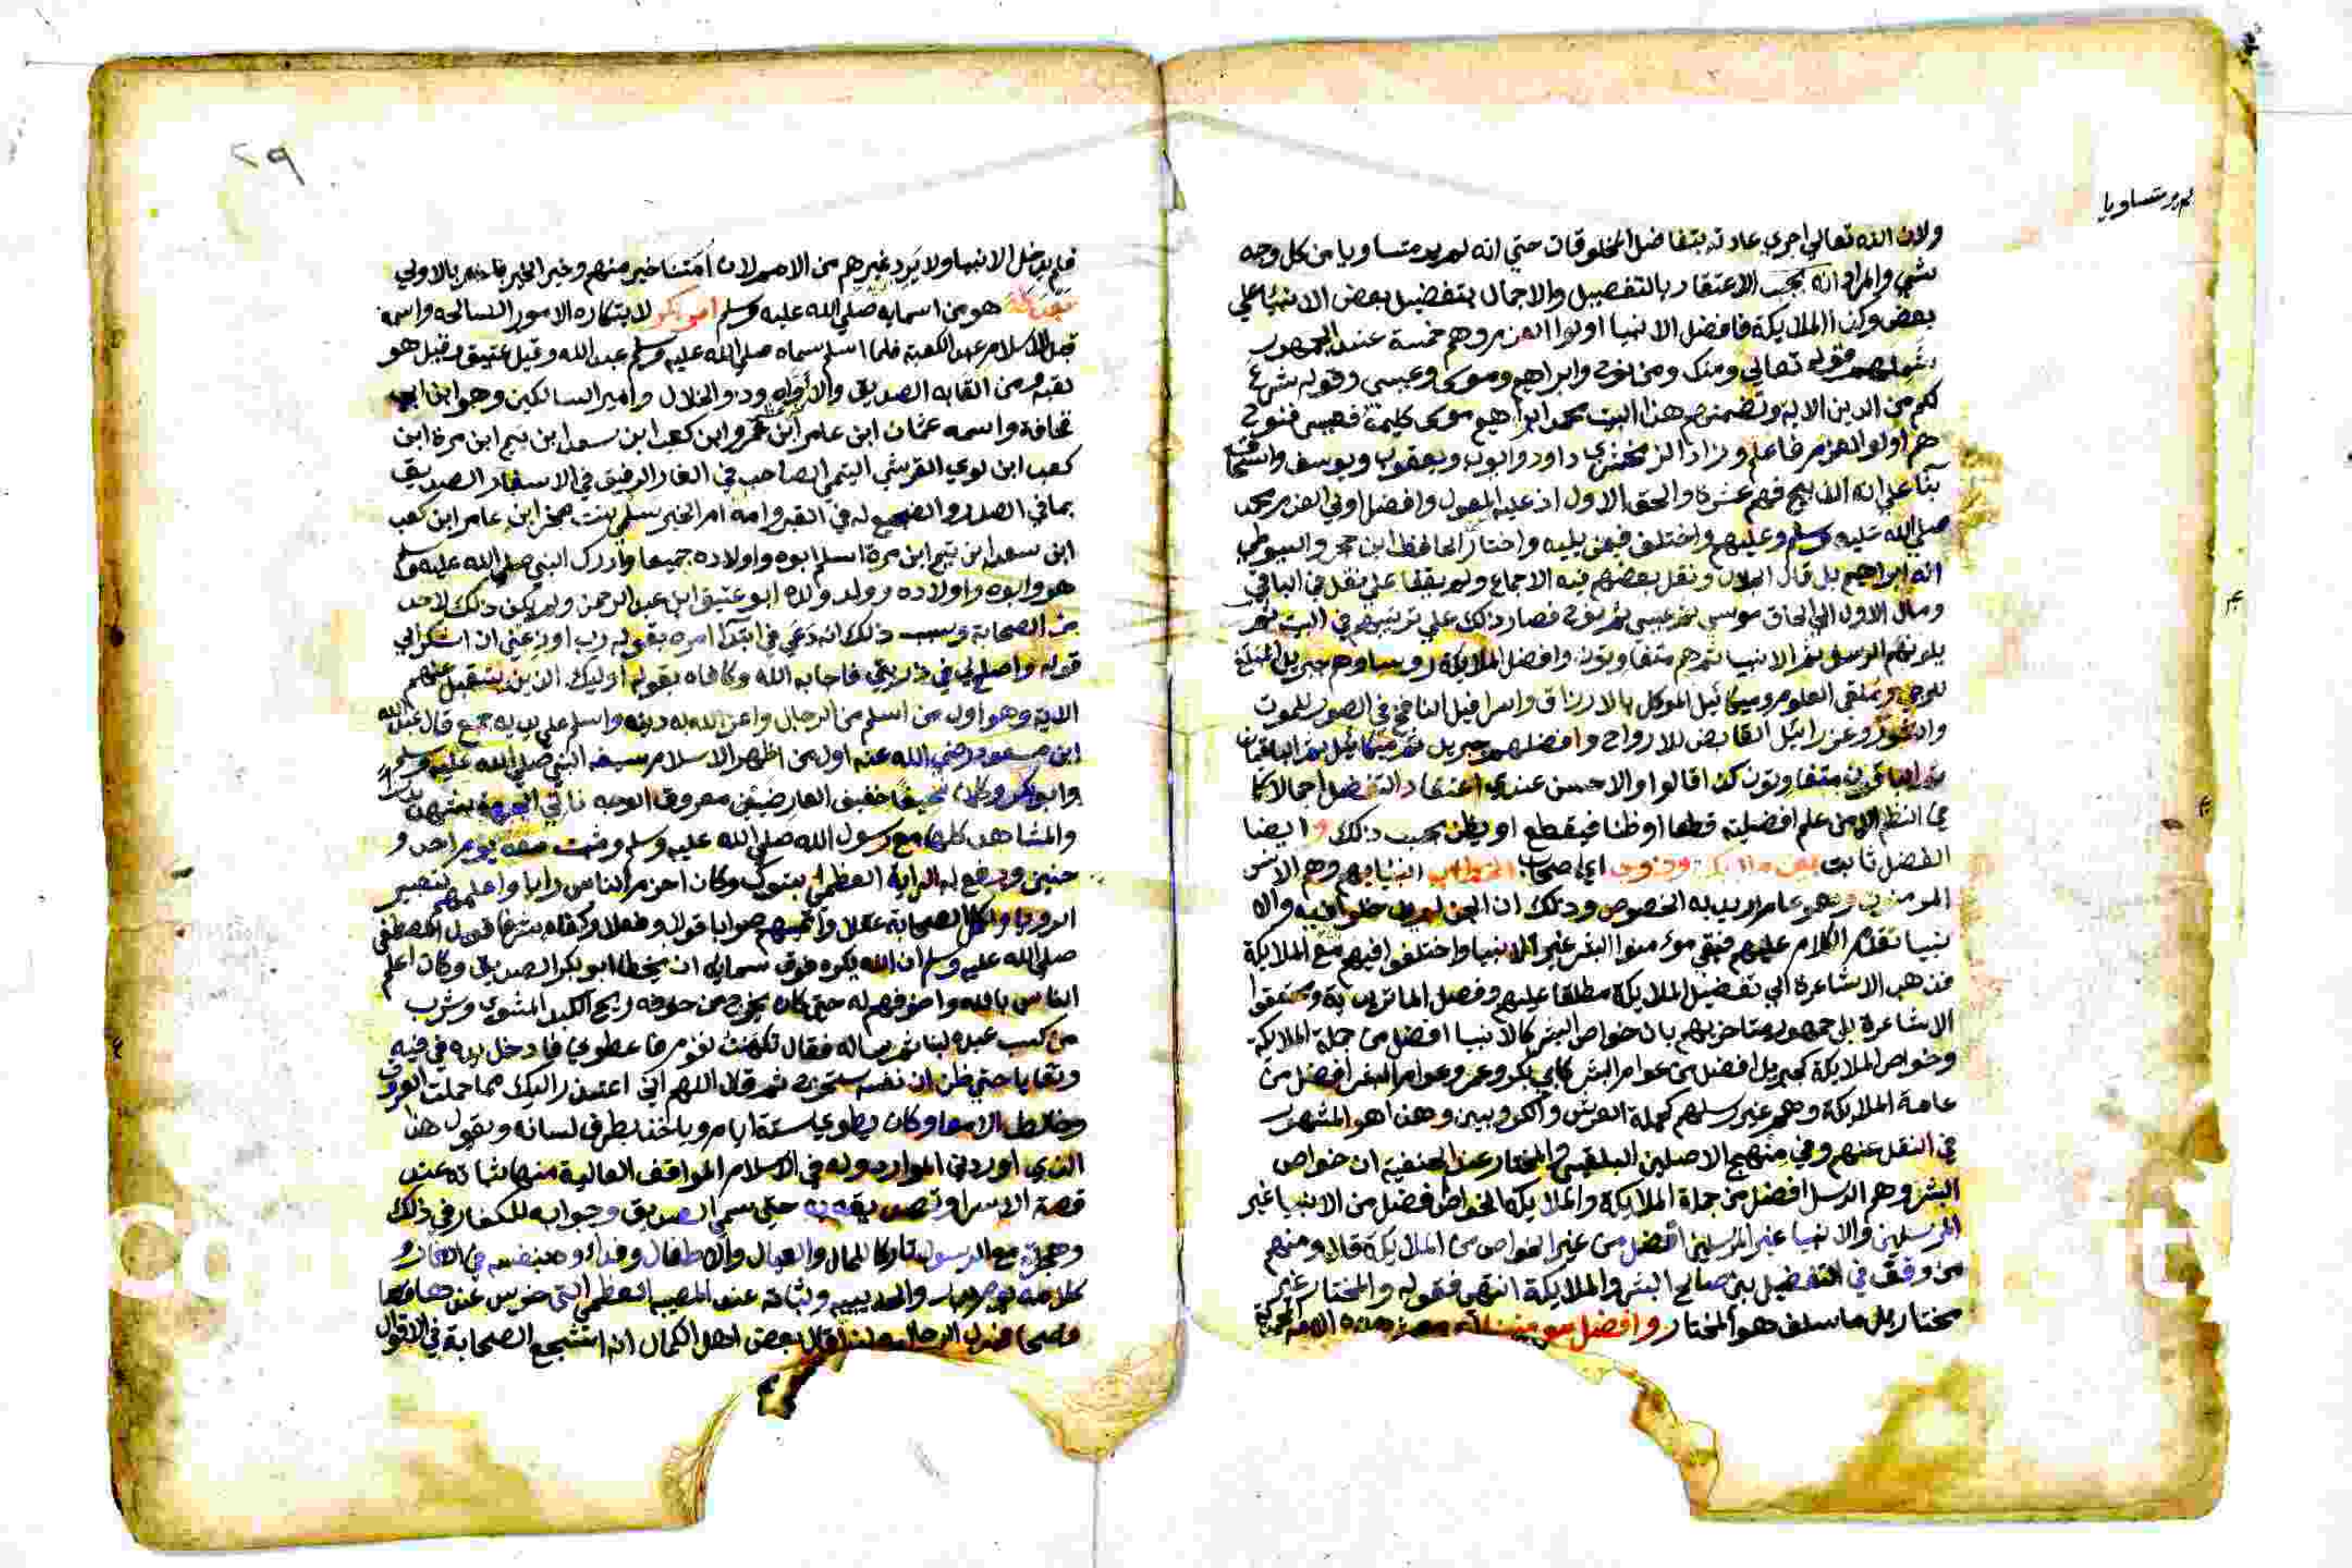 لم ير متساويا
ولان الله تعالي اجري عادته بتفاضل المخلوقات حتي انه لم يرد متساويا من كل وجه
شي والمراد انه يجب الاعتقاد بالتفصيل والاجمال بتفضيل بعض الانبيا علي
بعض وكذا الملايكة فافضل الانبيا اولوا العزم وهم خمسة عند الجمهور
قوله تعالي ومنك ومن نوح وابراهيم وموسي وعيسي وقوله شرع
لكم من الدين الاية وتضمنهم هذا البيت محمد ابراهيم موسي كليمه فعيسي فنوح
هم اولو العزم فاعلم وزاد الزمخشري داود وايوب ويعقوب ويوسف واسحاق
بنا علي انه الذبيح فهم عشرة والحق الاول اذ عليه المعول وافضل اولي العزم محمد
صلي الله عليه وسلم وعليهم واختلف فيمن يليه واختار الحافظ ابن حجر والسيوطي
انه ابراهيم بل قال الجلال ونقل بعضهم فيه الاجماع ولم يقفا علي نقل في الباقي
ومال الاول الي الحاق موسي ثم عيسي ثم نوح فصار ذلك علي ترتيبهم في البيت ثم
يلونهم الرسل ثم الانبيا ثم هم متفاوتون وافضل الملايكة روساوهم جبريل المبلغ
للوحي وملقي العلوم وميكائيل الموكل بالارزاق واسرافيل النافخ في الصور للموت
وعزرائيل القابض للارواح وافضلهم جبريل ثم ميكائيل ثم الباقيان
ثم الباقون متفاوتون كذا قالوا والاحسن عندي اعتقاد التفضيل اجمالا كما
في النظم الا من علم افضليته قطعا اوظنا فيقطع او يظن بحسب ذلك وايضا
الفضل ثابت اي اصحاب البنيا بهم وهم الانس
المومنين وهو عام اريد به الخصوص وذلك ان الجن
تقدم الكلام عليهم فبقي مومنوا البشر غير الانبيا واختلفوا فيهم مع الملايكة
فذهب الاشاعرة الي تفضيل الملايكة مطلقا عليهم وفصل الماتريدية ومحققوا
الاشاعرة بل جمهور متاخريهم بان خواص البشر كالانبيا افضل من جملة الملايكة
وخواص الملايكة كجبريل افضل من عوام البشر كابي بكر وعمر وعوام البشر افضل من
عامة الملايكة وهم غير رسلهم كحملة العرش والكروبيين وهذا هو المشهور
في النقل عنهم وفي منهج الاصلين البلقيني والمختار عند الحنفية ان خواص
البشر وهم الرسل افضل من جملة الملايكة والملايكة الخواص افضل من الانبيا غير
المرسلين والانبيا غير المرسلين افضل من غير الخواص من الملايكة قال ومنهم
من وقف في التفضيل بين صالح البشر والملايكة انتهي فقوله والمختار غير
مختار بل ما سلف هو المختار وافضل
٢٩
فلم يدخل الانبيا ولا يرد غيرهم من الامم لان امتنا خير منهم وخير الخير خير بالاولي
هو من اسمايه صلي الله عليه وسلم ابو بكر لابتكاره الامور الصالحه واسمه
قبل الاسلام عبد الكعبة فلما اسلم سماه صلي الله عليه وسلم عبد الله وقيل عتيق وقيل هو
لقبه ومن القابه الصديق والاواه وذو الخلال وامير السالكين وهو ابن ابي
قحافة واسمه عثمان ابن عامر ابن عمرو ابن كعب ابن سعد ابن تيم ابن مرة ابن
كعب ابن لوي القرشي التيمي الصاحب في الغار الرفيق في الاسفار الصديق
بما في الصدر والضجيع له في القبر وامه ام الخير سلمي بنت صخر ابن عامر ابن كعب
ابن سعد ابن تيم ابن مرة اسلم ابوه واولاده جميعا وادرك النبي صلي الله عليه وسلم
هو وابوه واولاده وولد ولده ابو عتيق ابن عبد الرحمن ولم يكن ذلك لاحد
من الصحابة وسبب ذلك انه دعي في ابتدا امره بقوله رب اوزعني ان اشكر الي
قوله واصلح لي في ذريتي فاجابه الله وكافاه بقوله اوليك الذين يتقبل عنهم
الاية وهو اول من اسلم من الرجال واعز الله به دينه واسلم علي يديه جمع قال عبد الله
ابن مسعود رضي الله عنه اول من اظهر الاسلام بسيفه النبي صلي الله عليه وسلم
وابو بكر وكان نحيفا خفيف العارضين معروق الوجه ناتي الجبهة شهد بدرا
والمشاهد كلها مع رسول الله صلي الله عليه وسلم وثبت معه يوم احد و
حنين ودفع له الراية العظمي بتبوك وكان احزم الناس رايا واعلمهم بتعبير
الرويا واكمل الصحابة عقلا واقيمهم صوابا قولا وفعلا وكفاه شرفا قول المصطفي
صلي الله عليه وسلم ان الله يكره فوق سمايه ان يخطا ابو بكر الصديق وكان اعلم
الناس بالله واخوفهم له حتي كان يخرج من جوفه ريح الكبد المشوي وشرب
من كسب عبده لبنا ثم ساله فقال تكهنت لقوم فاعطوني فادخل يده في فيه
وتقايا حتي ظن ان نفسه ستخرج ثم قال اللهم اني اعتذر اليك مما حملت العروق
وخالط الامعا وكان يطوي ستة ايام وياخذ بطرف لسانه ويقول هذا
الذي اوردني الموارد وله في الاسلام المواقف العالية منها ثباته عند
قصة الاسرا وتصديقه به حتي سمي الصديق وجوابه للكفار في ذلك
وهجرته مع الرسول تاركا للمال والعيال والاطفال وفداوه بنفسه في الغار و
كلامه يوم بدر والحديبيه وثباته عند المصيبه العظمي التي خرس عندها
بعض اهل الكمال انه اشجع الصحابة في الاقوال